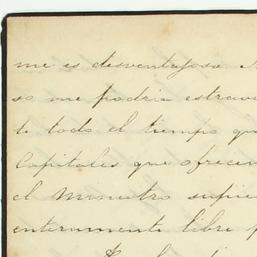 me es desventajosa
so me podria estrava
te todo el tiempo qu
Capitales que ofrecen
el Ministro supie
enteramente libre p